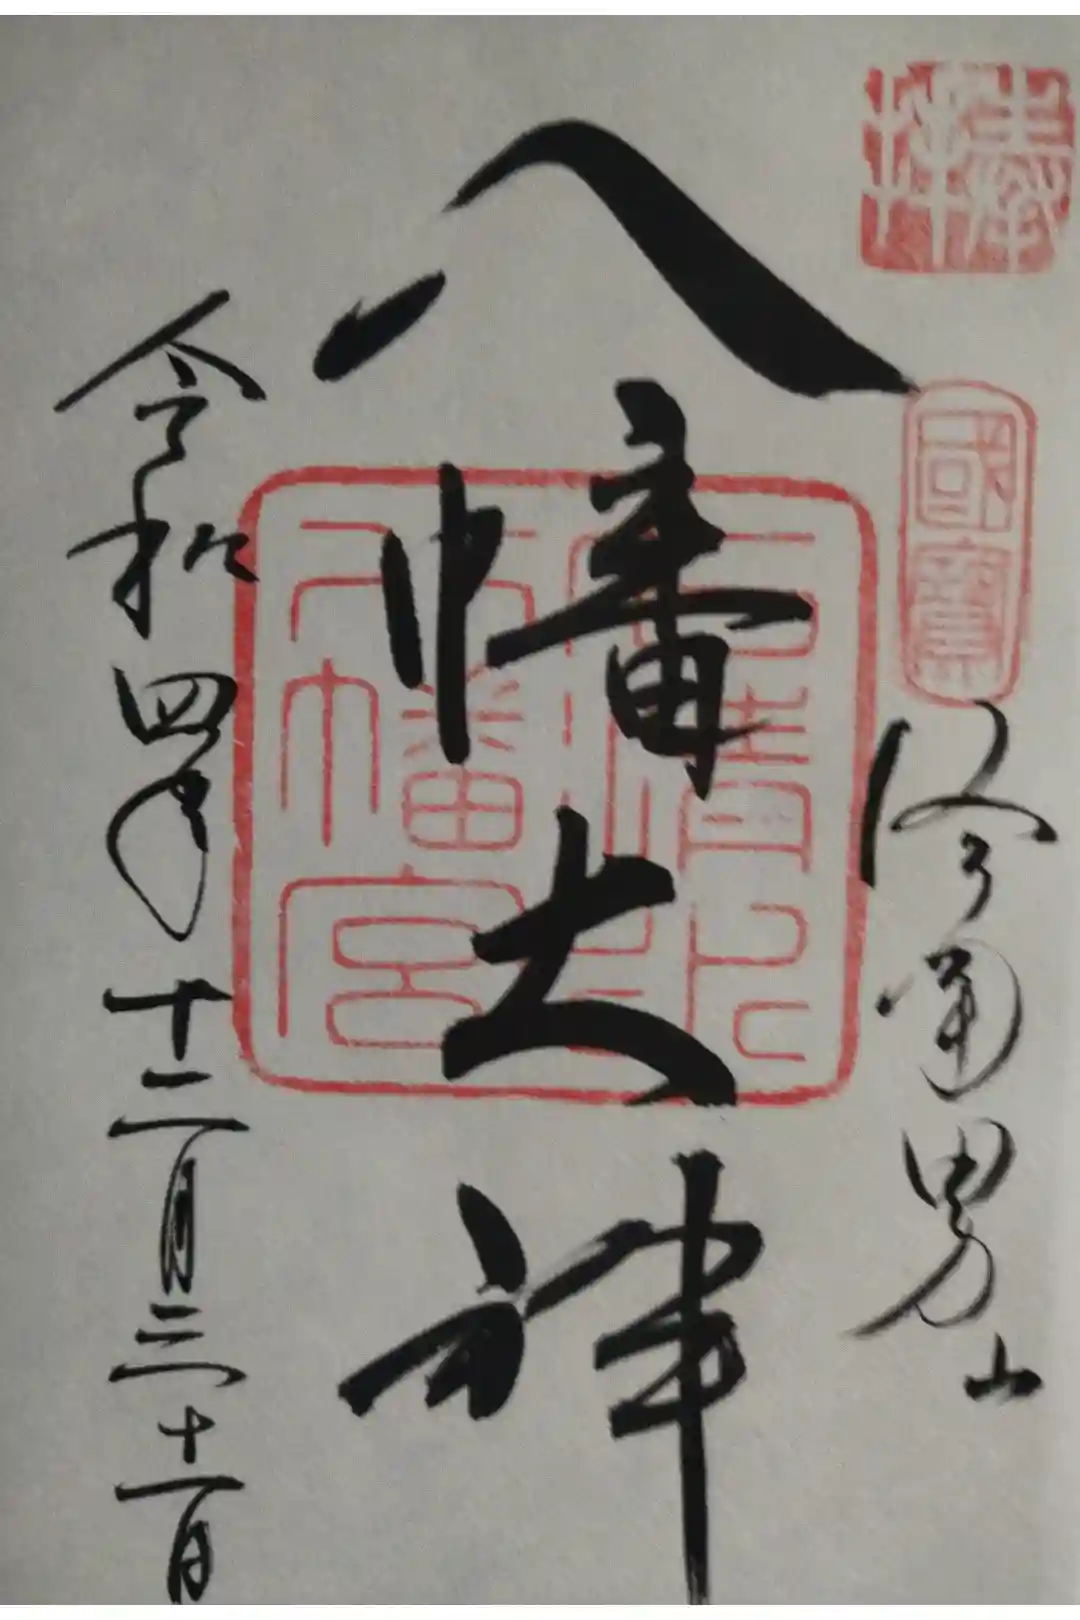 奉拝
國寶
洛南男山
八幡大神
石清水八幡宮
令和四年十二月三十一日